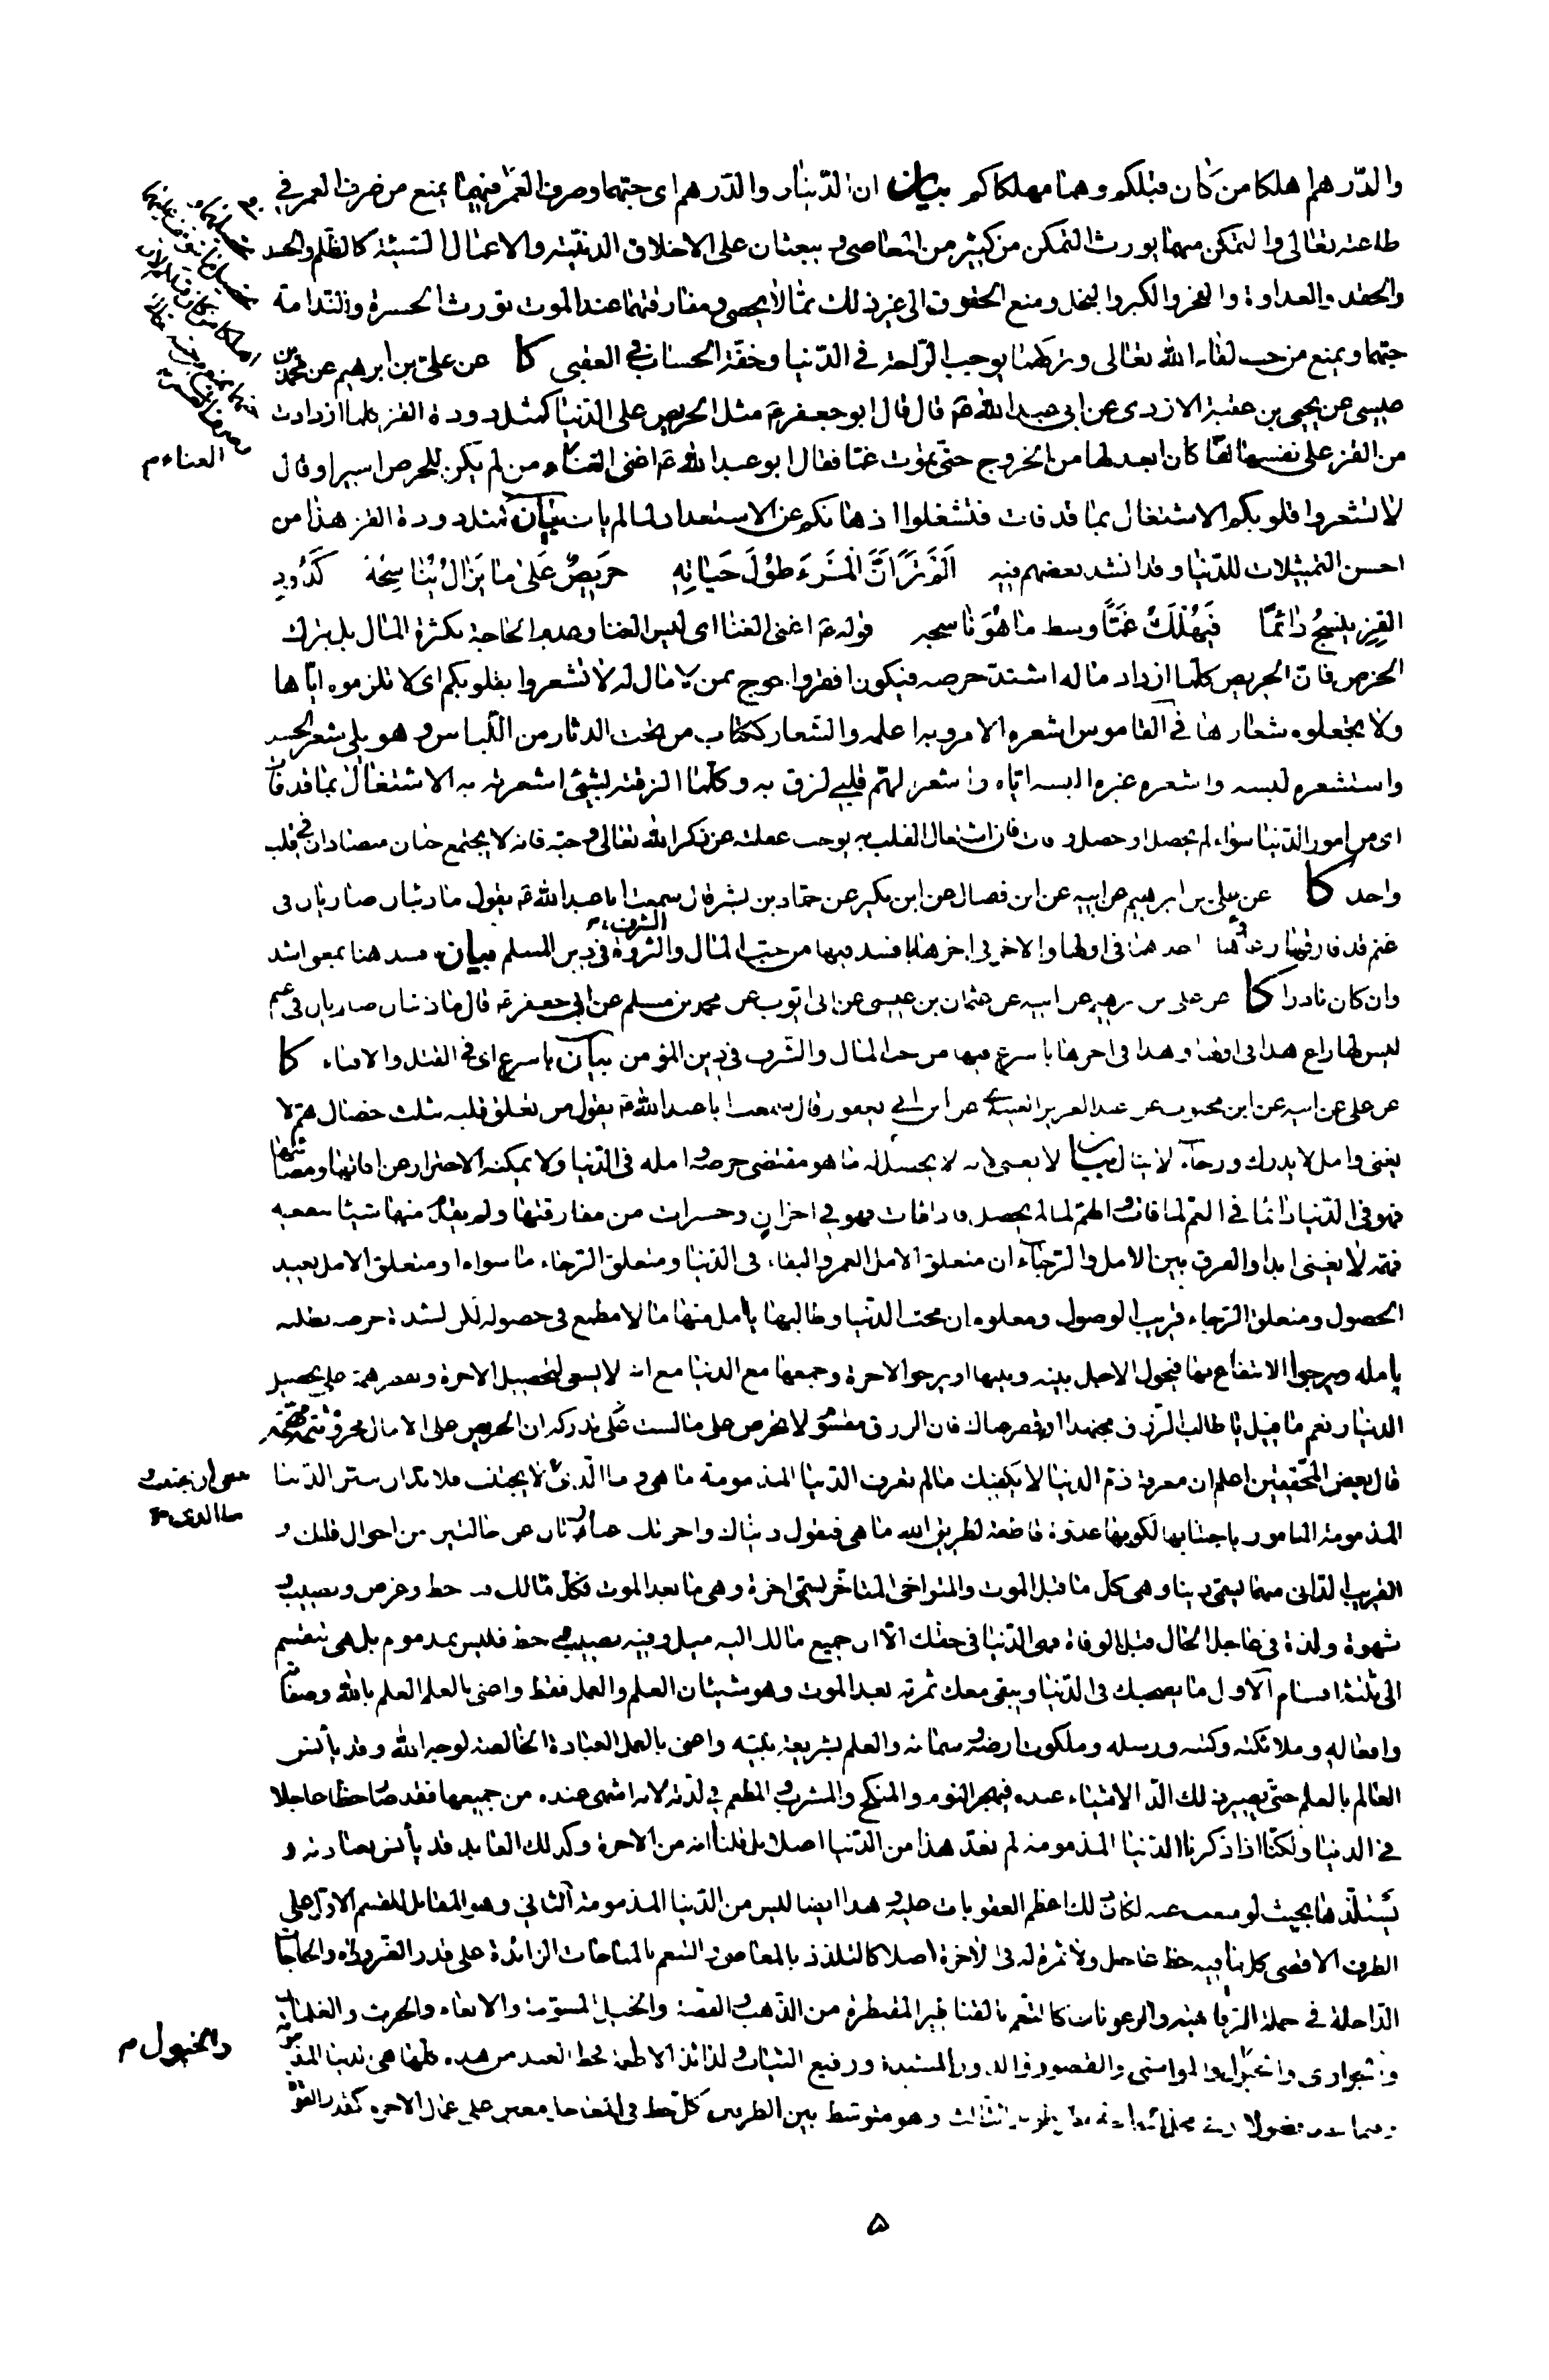 والدّرهم اهلكا من كان قبلكم وهما مهلكاكم بيان ان الدّينار والدّرهم اى حبّهما وصرف العمر فيهما يمنع من صرف العمر فى
طاعته تعالى والتمكن منهما يورث التمكن من كثير من المعاصى ويبعثان على الاخلاق الدنيّة والاعمال السّيئة كالظّلم والحسد
والحقد والعداوة والفخر والكبر والبخل ومنع الحقوق الى غير ذلك ممّا لا يحصى ومفارقتهما عند الموت تورث الحسرة والنّدامة
حبّهما ويمنع من حب لقاء الله تعالى وتركهما يوجب الرّاحة فى الدّنيا وخفّة الحساب فى العقبى كا عن علىّ بن ابرهيم عن محمّد بن
عيسى عن يحيى بن عقبة الازدى عن ابى عبد الله ع قال قال ابو جعفر ع مثل الحريص على الدّنيا كمثل دودة القز كلما ازدادت
من القز على نفسها لفّا كان ابعد لها من الخروج حتّى تموت غمّا فقال ابو عبد الله ع اغنى الغناء من لم يكن للحرص اسيرا وقال
لا تشعروا قلوبكم الاشتغال بما قد فات فتشغلوا اذهانكم عن الاستعداد لما لم يات بيان كمثل دودة القز هذا من
احسن التمثيلات للدّنيا وقد انشد بعضهم فيه اَلَمْ تَرَ اَنَّ الْمَرْءَ طُوْلَ حَيَاتِهِ حَرِيصٌ عَلىٰ مَا يَزَالُ يُنَاسِجُهُ كَدُودِ
القزِ ينسجُ دَائمًا فَيَهْلَكُ غَمًّا وسط ما هُوَ نَاسجه قوله ع اغنى الغنا اى ليس الغنا وعدم الحاجة بكثرة المال بل بترك
الحرص فانّ الحريص كلّما ازداد ماله اشتدّ حرصه فيكون افقر واحوج ممن لا مال له لا تشعروا بقلوبكم اى لا تلزموه ايّاها
ولا تجعلوه شعارها فى القاموس اشعره الامر وبه اعلمه والشعار ككتاب ما تحت الدثار من اللّباس وهو يلى شعر الجسد
واستشعره لبسه واشعره غيره البسه ايّاه واشعر الهمّ قلبى لزق به وكلّما الزقته بشئ اشعرته به الاشتغال بما قد فات
اى من امور الدّنيا سواء لم يحصل او حصل وفات فان اشتغال القلب به يوجب غفلته عن ذكر الله تعالى وحبّه فانه لا يجتمع حبّان متضادان فى قلب
واحد كا عن على بن ابرهيم عن ابيه عن ابن فضال عن ابن بكير عن حمّاد بن بشير قال سمعت ابا عبد الله ع يقول ما ذئبان ضاريان فى
غنم قد فارقها رعاؤها احدهما فى اولها والاخر فى اخرها بافسد فيها من حبّ المال والشرف فى دين المسلم بيان افسد هنا بمعنى اشد
وان كان نادرا كا عن على بن ابرهيم عن ابيه عن عثمان بن عيسى عن ابى ايّوب عن محمد بن مسلم عن ابى جعفر ع قال ما ذئبان ضاريان فى غنم
ليس لها راع هذا فى اولها وهذا فى اخرها باسرع فيها من حب المال والشّرف فى دين المؤمن بيان باسرع اى فى القتل والافناء كا
عن على عن ابيه عن ابن محبوب عن عبد العزيز العبدى عن ابن ابى يعفور قال سمعت ابا عبد الله ع يقول من تعلق قلبه بثلث خصال همّ لا
يفنى وامل لا يدرك ورجاء لا ينال بيان لا يفنى لانه لا يحصل له ما هو مقتضى حرصه وامله فى الدّنيا ولا يمكنه الاحتراز عن افاتها ومصائبها
فهو فى الدّنيا دائما فى الغم لما فات والهمّ لما لم يحصل فاذا مات فهو فى احزان وحسرات من مفارقتها ولم يقدّم منها شيئا ينفعه
فهمّه لا يفنى ابدا والفرق بين الامل والرّجاء ان متعلق الامل العمر والبقاء فى الدّنيا ومتعلق الرّجاء ما سواه او متعلق الامل بعيد
الحصول ومتعلق الرّجاء قريب الوصول ومعلوم ان محب الدّنيا وطالبها يأمل منها ما لا مطمع فى حصوله لكن لشدة حرصه يطلبه
يأمله ويرجوا الانتفاع بها فيحول الاجل بينه وبينها او يرجو الاخرة وجمعها مع الدنيا مع انه لا يسعى لتحصيل الاخرة ويقصر همّه على تحصيل
الدنيا ونعم ما قيل يا طالب الرّزق مجتهدا اقصر عناك فان الرزق مقسوم لا تحرص على ما لست تدركه ان الحريص على الامال محروم تتمّة مهمّة
قال بعض المحقّقين اعلم ان معرفة ذمّ الدنيا لا يكفيك ما لم تعرف الدّنيا المذمومة ما هى وما الّذى لا يجتنب فلا بدّ ان نبيّن الدّنيا
المذمومة المأمور باجتنابها لكونها عدوّة قاطعة لطريق الله ما هى فنقول دنياك واخرتك عبارتان عن حالتين من احوال قلبك و
القريب الدّانى منهما يسمّى دنيا وهى كلّ ما قبل الموت والمتراخى المتأخّر يسمّى اخرة وهى ما بعد الموت فكلّ ما لك فيه حظ وغرض ونصيب و
شهوة ولذة فى عاجل الحال قبل الوفاة فهى الدّنيا فى حقّك الّا انّ جميع ما لك اليه ميل وفيه نصيب وحظ فليس بمذموم بل هى تنقسم
الى ثلثة اقسام الاول ما يصحبك فى الدّنيا ويبقى معك ثمرته بعد الموت وهو شيئان العلم والعمل فقط واعنى بالعلم العلم بالله وصفاته
وافعاله وملائكته وكتبه ورسله وملكوت ارضه وسمائه والعلم بشريعة نبيّه واعنى بالعمل العبادة الخالصة لوجه الله وقد يأنس
العالم بالعلم حتّى يصير ذلك الذّ الاشياء عنده فيهجر النوم والمنكح والمشرب والمطعم فى لذّته لانه اشهى عنده من جميعها فقد صار حظا عاجلا
فى الدنيا ولكنّا اذا ذكرنا الدّنيا المذمومة لم نعدّ هذا من الدّنيا اصلا بل قلنا انه من الاخرة وكذلك العابد قد يأنس بعبادته و
يستلذّها بحيث لو منعت عنه لكان ذلك اعظم العقوبات عليه وهذا ايضا ليس من الدّنيا المذمومة الثانى وهو المقابل للقسم الاوّل على
الطرف الاقصى كل ما فيه حظ عاجل ولا ثمرة له فى الاخرة اصلا كالتلذذ بالمعاصى والتنعم بالمباحات الزائدة على قدر الضّرورة والحاجات
الدّاخلة فى جملة الرّفاهية والرعونات كالتنعّم بالقناطير المقنطرة من الذّهب والفضّة والخيل المسوّمة والانعام والحرث والغلمان
والجوارى والخيول والمواشى والقصور والدور المشيدة ورفيع الثياب ولذائذ الاطعمة فحظ العبد من هذه كلّها هى الدنيا المذمومة
الثالث وهو متوسّط بين الطرفين كل حظ فى العاجل معين على اعمال الاخرة كقدر القوت
العناء م
ما الذى
والخيول م
۵